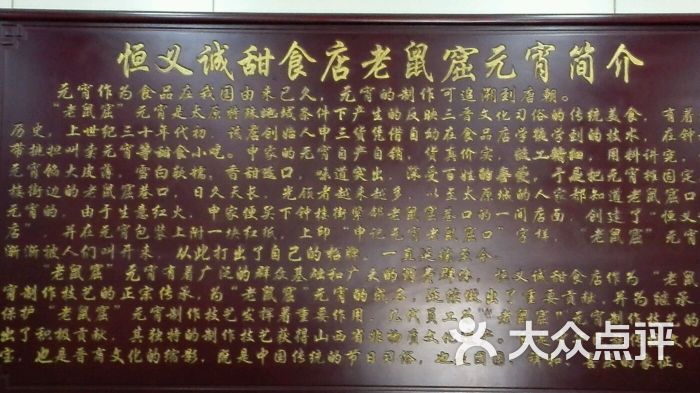 恒义诚甜食店老鼠窟元宵简介
元宵作为食品在我国由来已久，元宵的制作可追溯到唐朝。
“老鼠窟”元宵是太原特殊地域条件下产生的反映三晋文化习俗的传统美食，有着
历史，上世纪三十年代初，该店创始人申三货凭借自幼在食品店学徒学到的技术，在钟
节推把叫卖元宵等甜食小吃。申家的元宵自产自销，货真价实，做工精细，用料讲究，
元宵馅大皮薄，雪白软糯，香甜适口，味道突出，深受百姓的喜爱，于是把元宵摊固定
楼街边的老鼠窟巷口，日久天长，光顾者越来越多，以至太原城的人家都知道老鼠窟口
元宵的，由于生意红火，申家便买下钟楼街紧邻老鼠窟巷口的一间店面，创建了“恒义
店”，并在元宵包装上附一块红纸，上印“申记元宵老鼠窟口”字样，“老鼠窟”元宵
渐渐被人们叫开来，从此打出了自己的招牌，一直延续至今。
“老鼠窟”元宵有着广泛的群众基础和广大的消费群体，恒义诚甜食店作为“老鼠
宵制作技艺的正宗传承，为“老鼠窟”元宵的成名、延续做出了重要贡献，并为继承
保护“老鼠窟”元宵制作技艺发挥着重要作用，几代员工为“老鼠窟”元宵制作技艺的
出了积极贡献，其独特的制作技艺获得山西省非物质文化
宝，也是晋商文化的缩影，既是中国传统的节日习俗，也是团圆、喜庆的象征。
大众点评